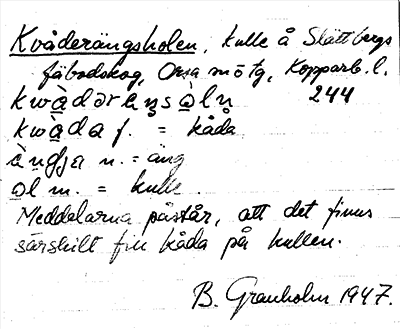 Kvåderängsholen, kulle å Slättbergs
fäbodskog, Orsa m o tg, Kopparb. l.
kwàdəręŋsòln 244
kwàda f. = kåda
àŋdja n. = äng
ɔl m. = kulle.
Meddelarna påstår, att det finns
särskilt fin kåda på kullen.
B. Granholm 1947.